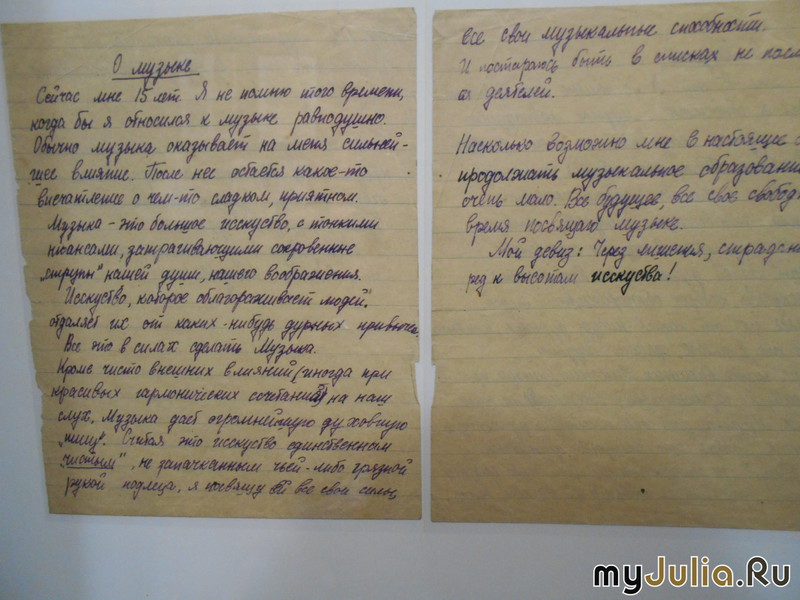 О музыке
Сейчас мне 15 лет. Я не помню того времени,
когда бы я относился к музыке равнодушно.
Обычно музыка оказывает на меня сильней-
шее влияние. После нее остается какое-то
впечатление о чем-то сладком, приятном.
Музыка – это большое исскуство, с тонкими
нюансами, затрагивающими сокровенные
„струны" нашей души, нашего воображения.
Исскуство, которое облагораживает людей,
отдаляет их от каких-нибудь дурных привычек.
Все это в силах сделать Музыка.
Кроме чисто внешних влияний (иногда при
красивых гармонических сочетаний) на наш
слух, Музыка дает огромнейшую духовную
„пищу". Считая это исскуство единственным
„чистым", не запачканным чьей-либо грязной
рукой подлеца, я посвящу ей все свои силы,
все свои музыкальные способности.
И постараюсь быть в списках не
деятелей.
Насколько возможно мне в настоящее
продолжать музыкальное образование
очень мало. Все будущее, все свое
время посвящаю музыке.
Мой девиз: Через лишения,
ред к высотам исскуства!
myJulia.Ru